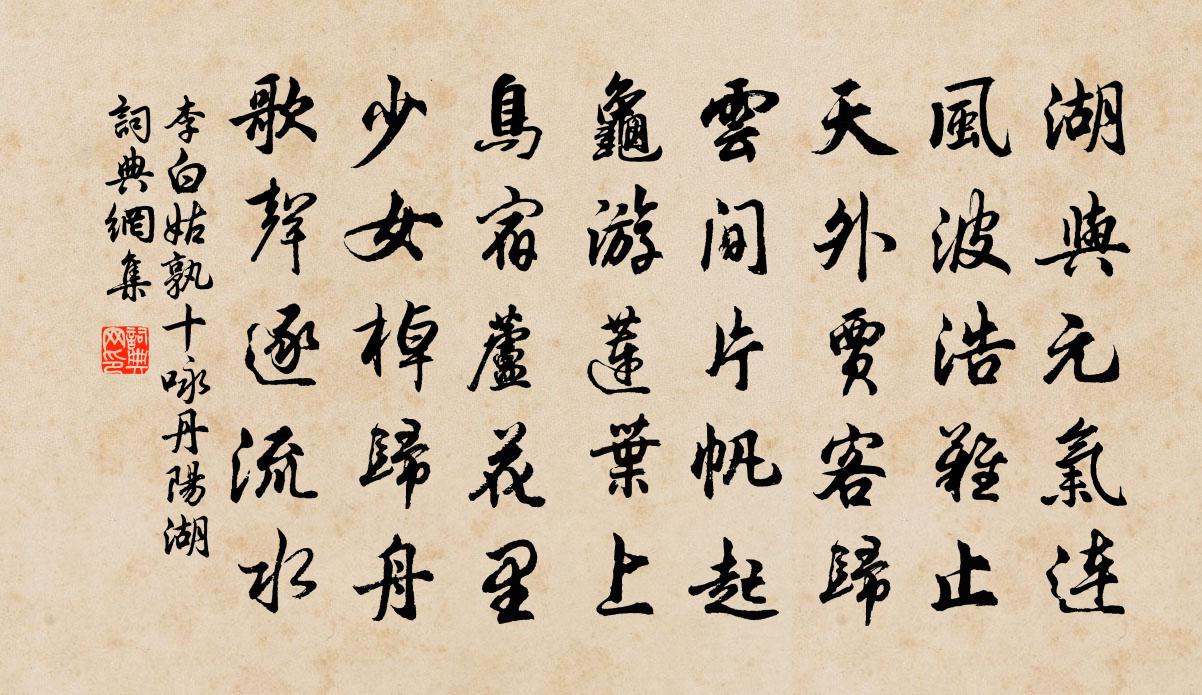 湖與元氣连
風波浩難止
天外賈客歸
雲间片帆起
龜游莲葉上
鳥宿蘆花里
少女棹歸舟
歌聲逐流水
李白姑孰十咏丹陽湖
詞典網集
詞典
网印